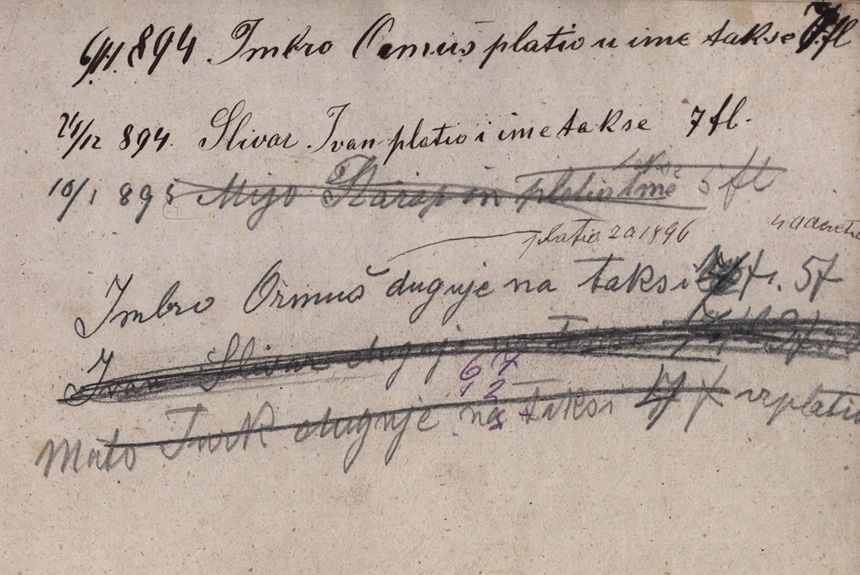 6/11 894 Imbro Ormuš platio u ime takse 7 fl
24/12 894. Slivar Ivan platio i ime takse 7 fl.
10/1 895 Mijo platio ime takse 5 fl
platio za 1896
Imbro Ormuš duguje na taksi f. 57
Ivan Slivar duguje na taksi
67
12
Mato Turk duguje na taksi izplatio